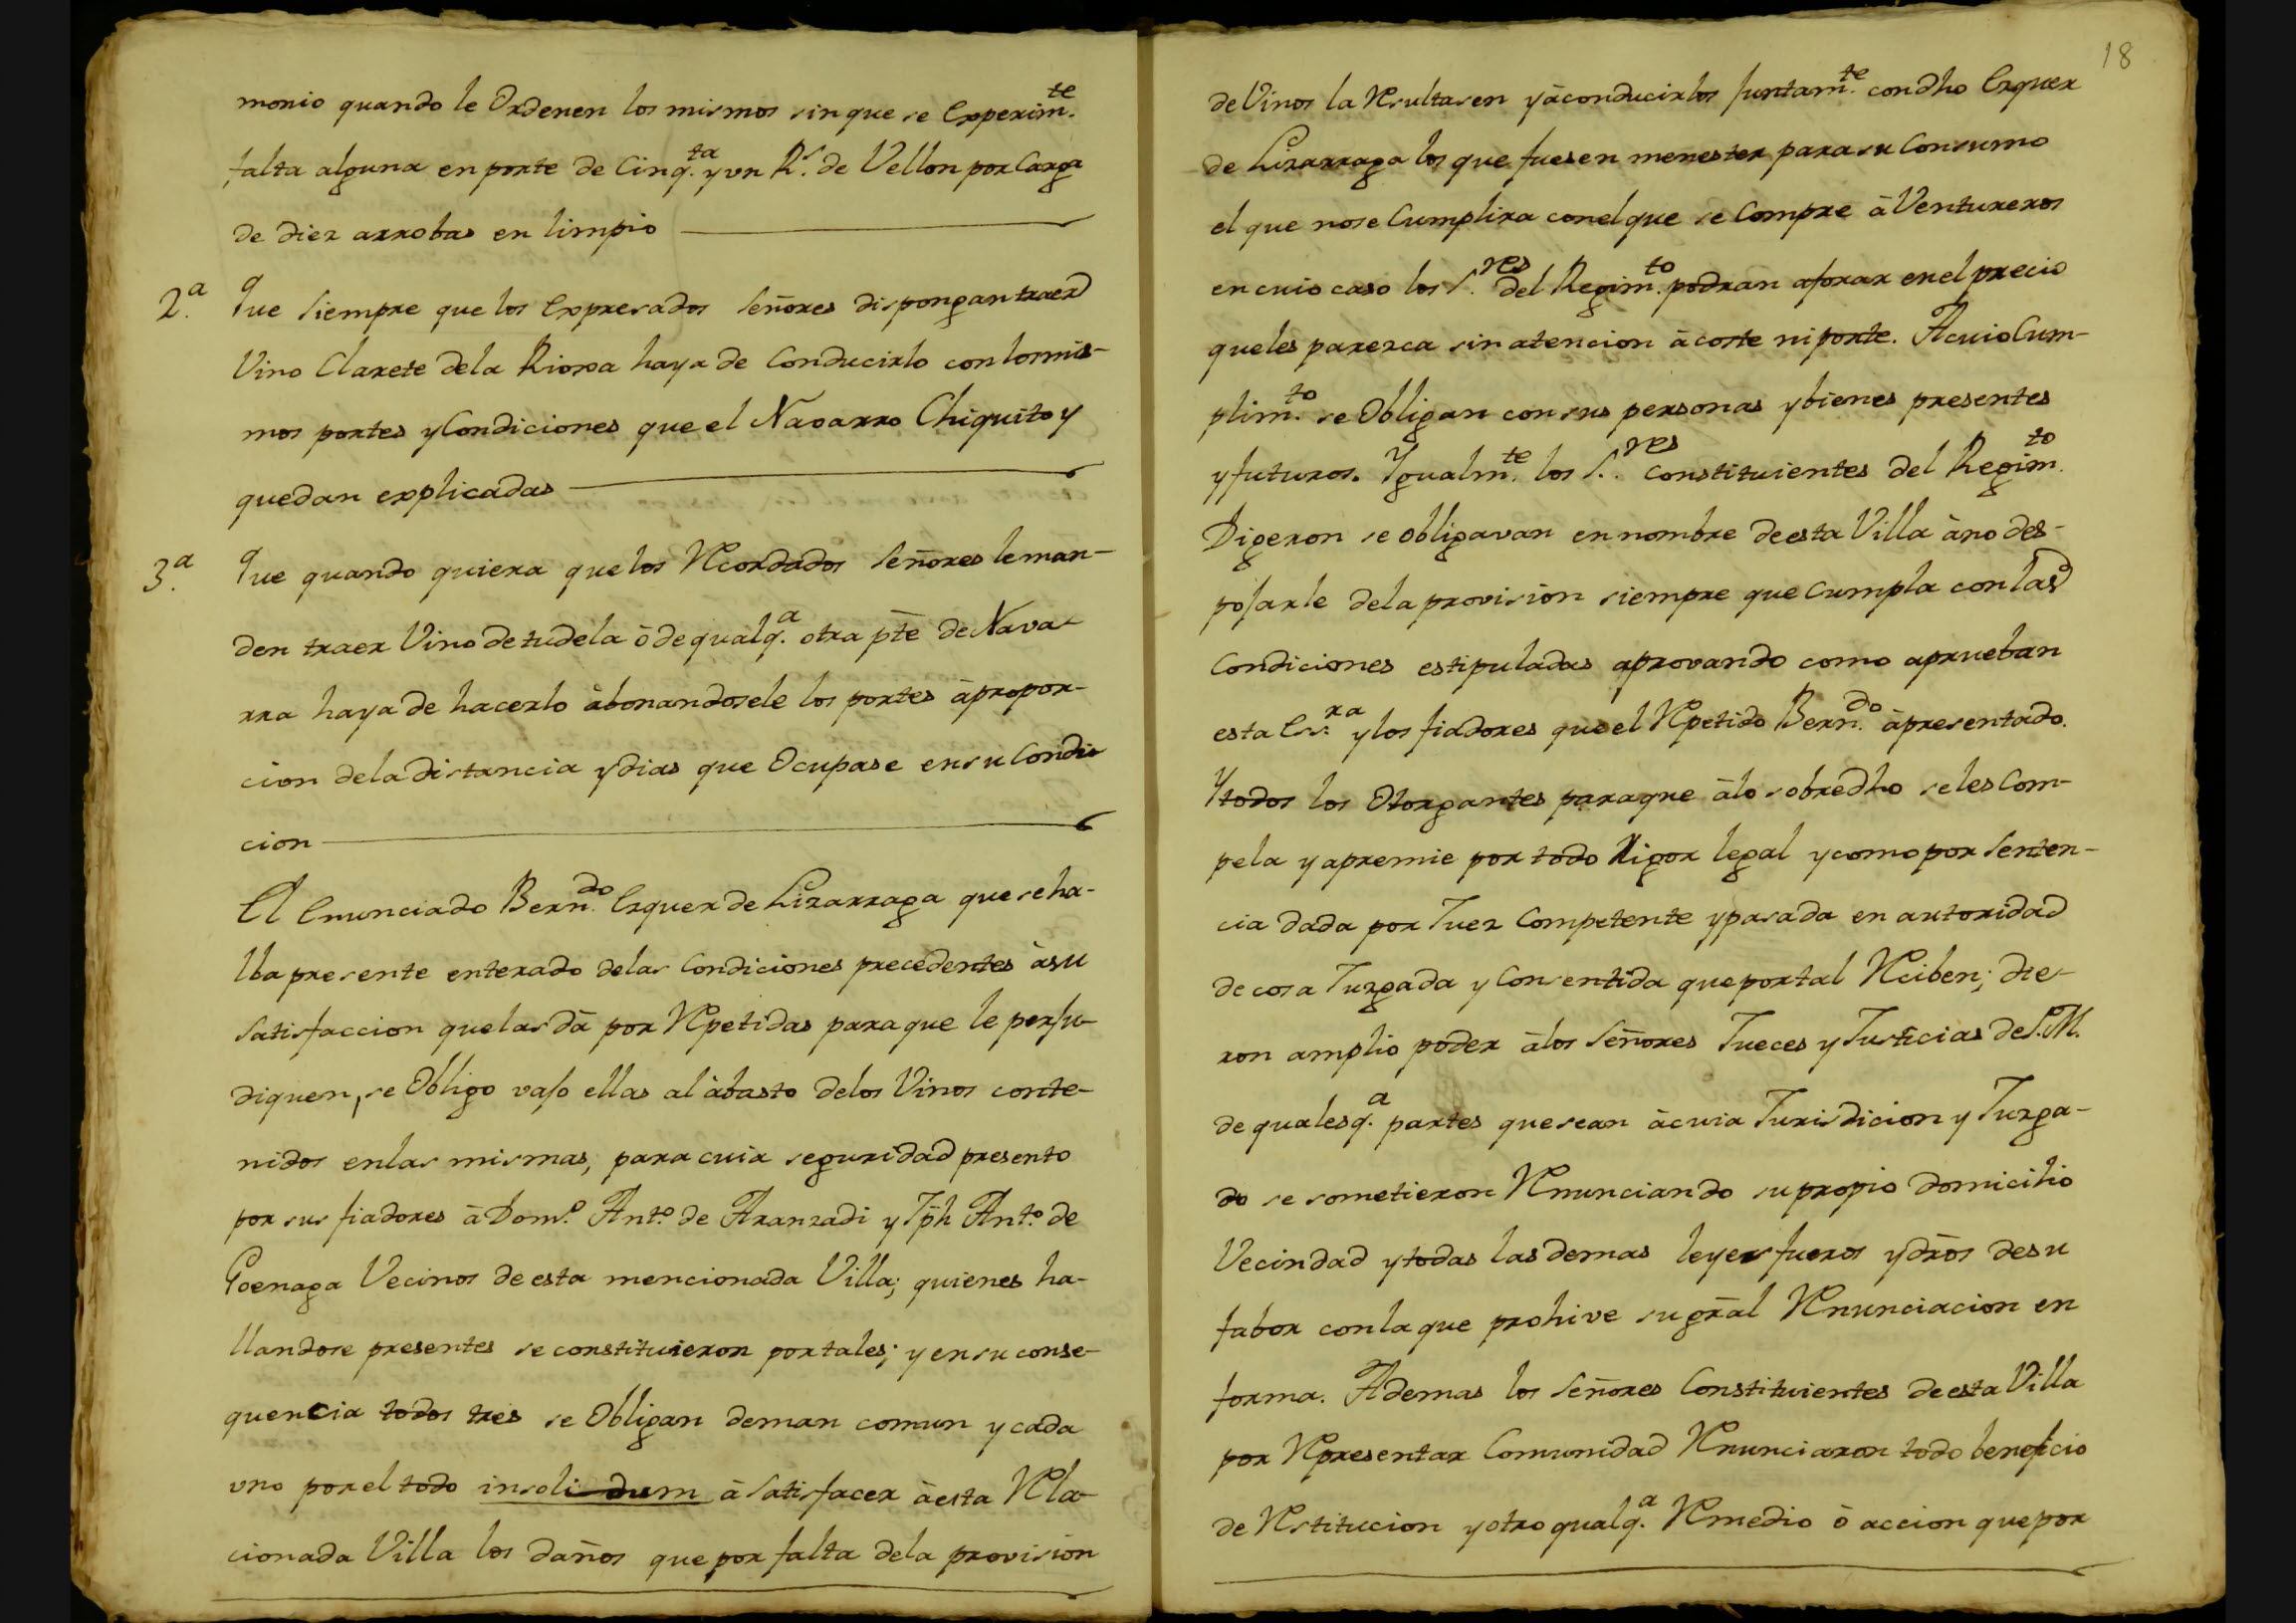 monio quando le Ordenen los mismos sin que se Experim.te
falta alguna en porte de Cinq.ta y vn R.s de Vellon por Carga
de diez arrobas en limpio
2.a Que Siempre que los Expresados Señores dispongan traer
Vino Clarete dela Rioxa haya de Conducirlo con los mis-
mos portes y Condiciones que el Navarro Chiquito y
quedan explicadas
3.a Que quando quiera que los Recordados Señores leman-
den traer Vino de tudela ò de qualq.a otra pte de Nava-
rra haya de hacerlo àbonandosele los portes àpropor-
cion dela distancia y dias que Ocupase en su Condu-
cion
El Enunciado Bern.do Ezquer de Lizarraga que se ha-
lla presente enterado delas Condiciones precedentes àsu
Satisfaccion que las dà por Repetidas para que le perju-
diquen, se Obligo vajo ellas al àbasto delos Vinos conte-
nidos en las mismas, para cuia seguridad presento
por sus fiadores à Dom.o Ant.o de Aranzadi y Jph Ant.o de
Goenaga Vecinos de esta mencionada Villa; quienes ha-
llandose presentes se constituieron por tales; y en su conse-
quencia todos tres se Obligan deman comun y cada
vno por el todo insolidum à Satisfacer àesta Rela-
cionada Villa los daños que por falta dela provision
18
de Vinos la Resultasen y àconducirlos Juntam.te con dho Ezquer
de Lizarraga los que fuesen menester para su Consumo
el que nose Cumplira con el que se Compre à Ventureros
en cuio caso los S.res del Regim.to podran aforar en el precio
queles parezca sin atencion àcoste ni porte. A cuio Cum-
plim.to se Obligan con sus personas y bienes presentes
y futuros. Ygualm.te los S.res Constituientes del Regim.to
Digeron se obligavan en nombre de esta Villa àno des-
pojarle dela provision siempre que Cumpla con las
Condiciones estipuladas aprovando como aprueban
esta Ess.ra y los fiadores que el Repetido Bern.do àpresentado.
Y todos los Otorgantes para que àlo sobredho seles Com-
pela y apremie por todo Rigor legal y como por Senten-
cia dada por Juez Competente y pasada en autoridad
de cosa Juzgada y Consentida que por tal Reciben; die-
ron amplio poder àlos Señores Jueces y Justicias de S.M.
de qualesq.a partes que sean àcuia Jurisdicion y Juzga-
do se sometieron Renunciando su propio domicilio
Vecindad y todas las demas leyes fueros y dros de su
fabor con la que prohive su gral Renunciacion en
forma. Ademas los Señores Constituientes de esta Villa
por Representar Comunidad Renunciaron todo beneficio
de Restitucion y otro qualq.a Remedio ò accion que por